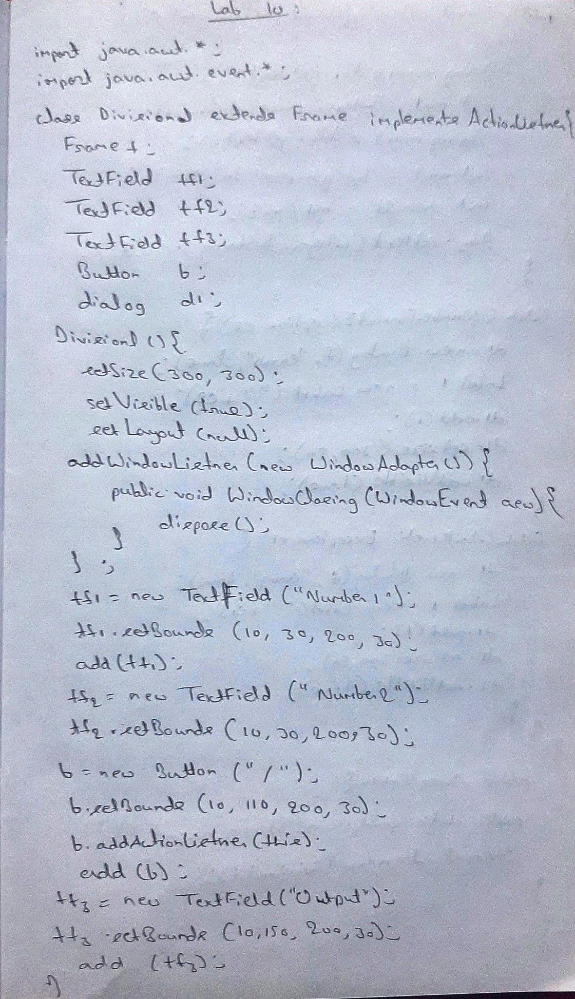 Lab 10:
import java.awt.*;
import java.awt.event.*;
class Divisional extends Frame implements ActionListner{
Frame f;
TextField tf1;
TextField tf2;
TextField tf3;
Button b;
dialog d1;
Divisionl (){
setSize(300, 300);
setVisible (true);
set Layout (null);
addWindowListner (new WindowAdapter()) {
public void WindowClosing (WindowEvent aew) {
dispose();
}
} ;
tf1 = new TextField ("Number 1");
tf1.setBounds (10, 30, 200, 30);
add(tf1);
tf2 = new TextField ("Number2");
tf2.setBounds (10, 30, 200, 30);
b = new Button ("/");
b.setBounds (10, 110, 200, 30);
b.addActionListner (this);
add (b);
tf3 = new TextField ("Output");
tf3.setBounds (10, 150, 200, 30);
add (tf3);
}